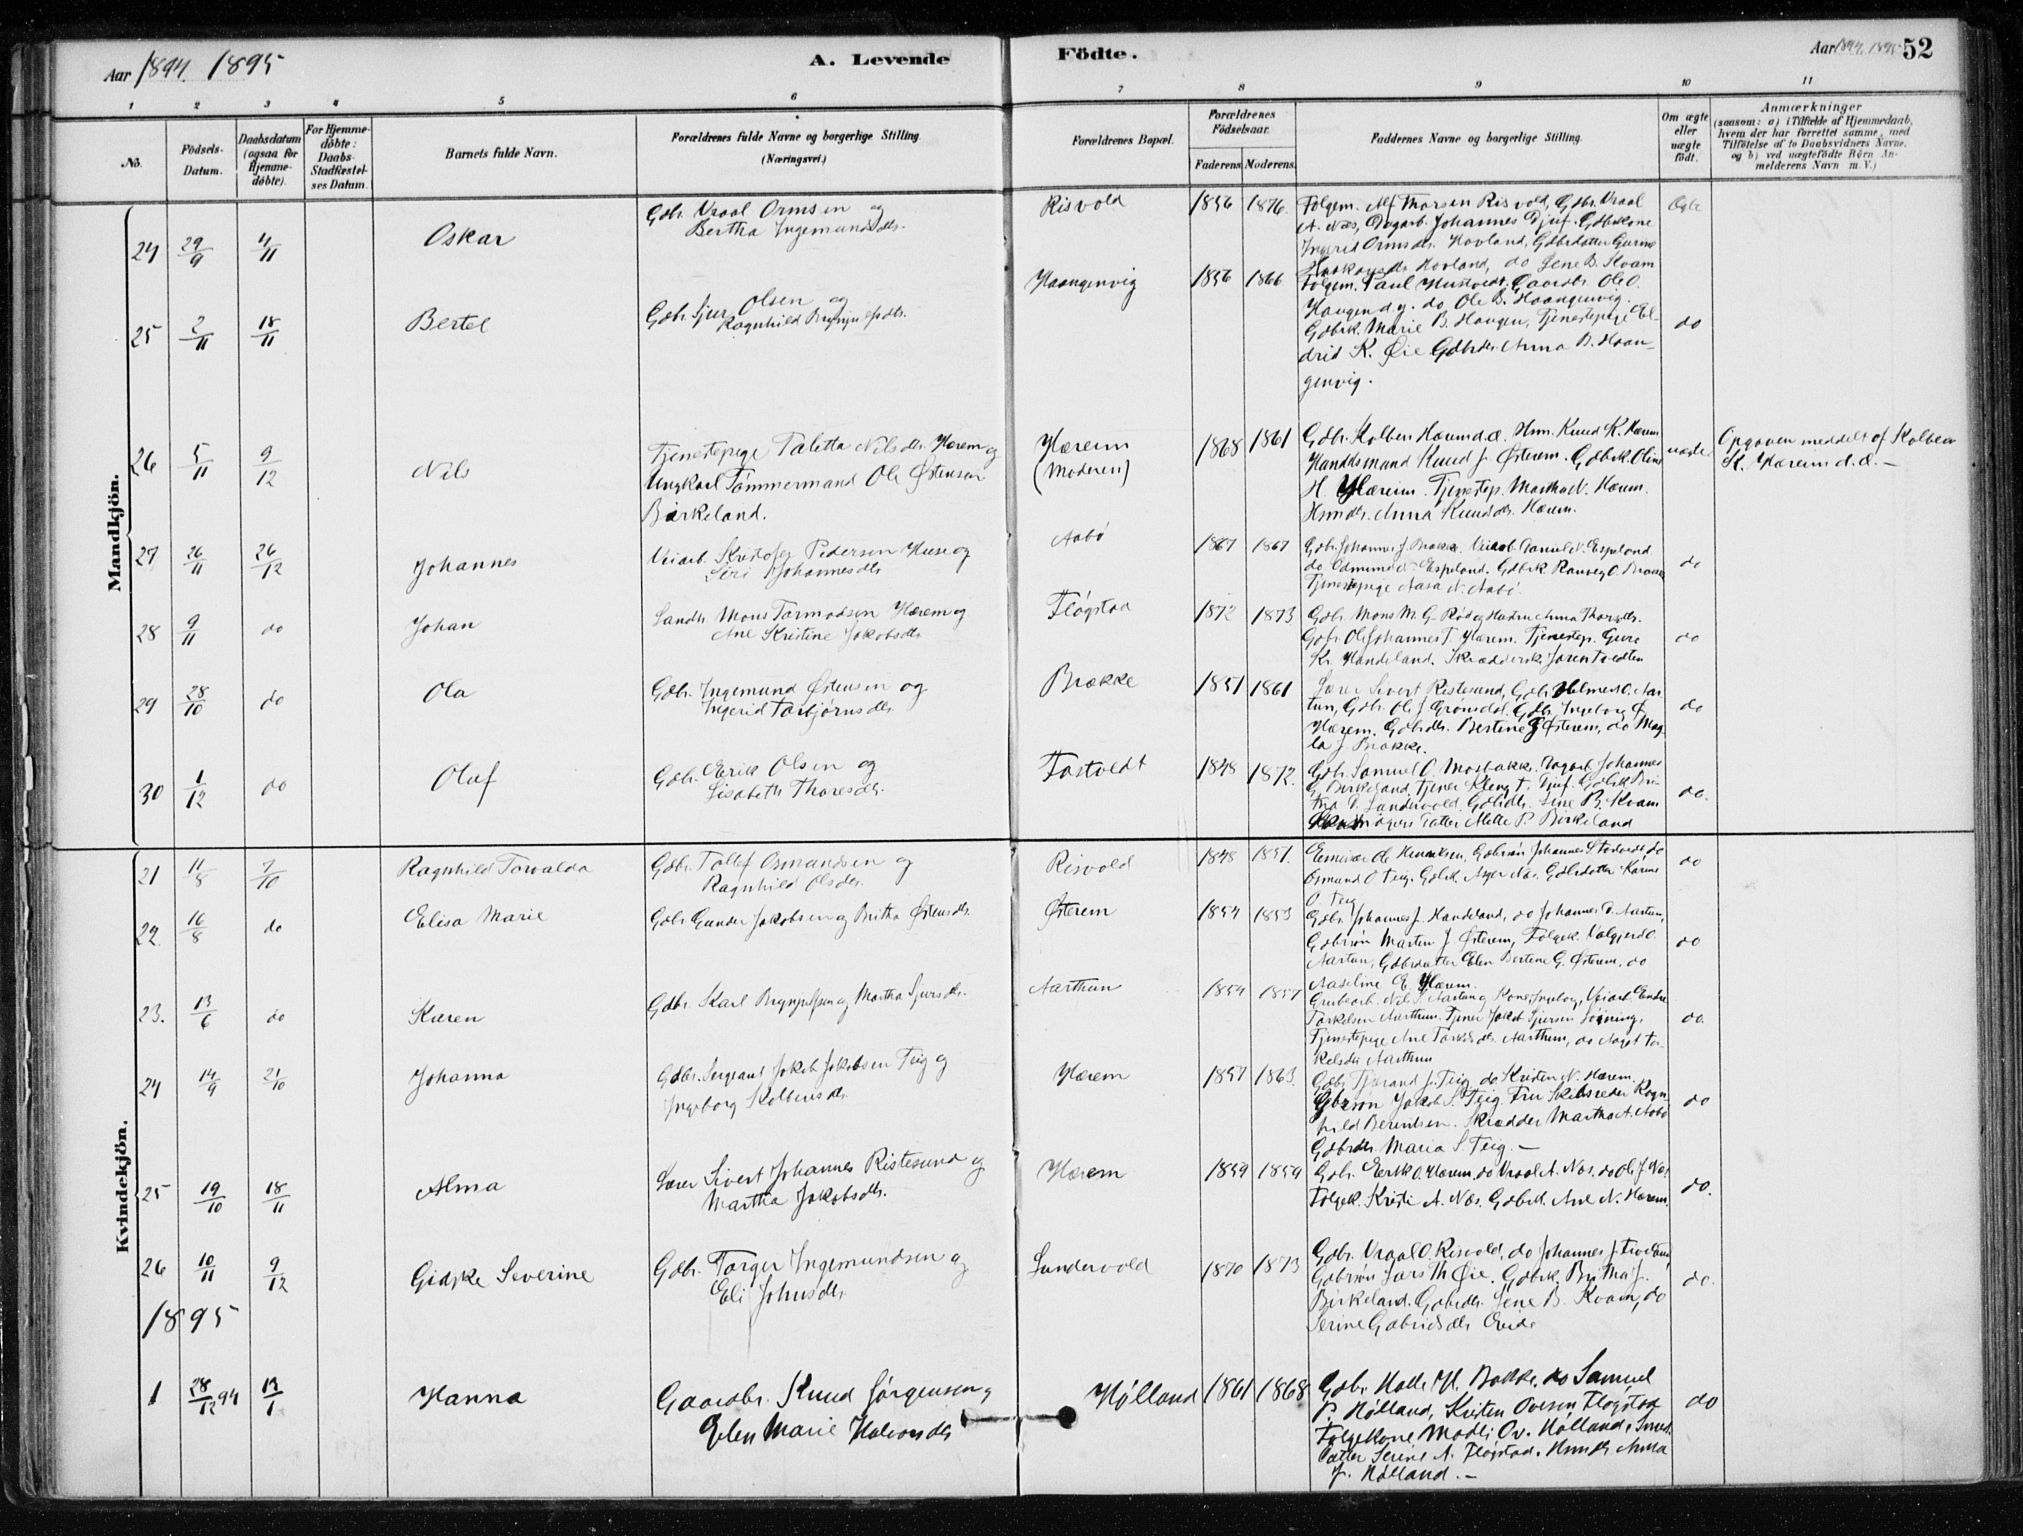 Aar 1894. 1895
A. Levende Födte.
Aar 1894. 1895 52
1 2 3 4 5 6 7 8 9 10 11
No.
Födsels-Datum.
Daabsdatum (ogsaa for Hjemme-döbte).
For Hjemme-döbte: Daabs-Stadfæstel-ses Datum.
Barnets fulde Navn.
Forældrenes fulde Navne og borgerlige Stilling (Næringsvei.)
Forældrenes Bopæl.
Forældrenes Födselsaar.
Faderens Moderens.
Faddernes Navne og borgerlige Stilling.
Om ægte eller uægte födt.
Anmærkninger
(saasom: a) i Tilfælde af Hjemmedaab,
hvem der har forrettet samme, med
Tilföielse af to Daabsvidners Navne.
og b) ved uægtefödte Börn An-
melderens Navn m. V.)
Mandkjön.
24 29/9 4/11 Oskar Gdbr. Vraal Ormsen og
Bertha Ingemundsdtr. Risvold 1856 1876. Folgem. Alf Thorsen Risvold, Gdbr. Vraal
A. Næs, Dagarb. Johannes Djuf. Gdbrkone
Ingrid Ormsdr. Hovland, Gdbrdatter Gurine
Hovland, do Jene B. Kvam Ægte
25 2/11 18/11 Bertel Gdbr. Sjur Olsen og
Ragnhild Brynjulfsdtr. Haangenvig 1856 1866 Folgem. Paul Hustvedt, Gaardbr. Ole O.
Haugen d.y. do Ole B. Haangenvig.
Gdbrk. Marie B. Haugen, Tjenestepige El-
drid K. Øie Gdbrdr. Anna B. Haan-
genvig. do
26 5/11 9/12 Nils Tjenestepige Taletta Nilsdtr. Hærem og
Ungkarl Tømmermand Ole Østensen
Birkeland. Hærem
(Moderen) 1868 1861 Gdbr. Kolben Hærem d.æ. Hm. Knud K. Hærem
Handelsmand Knud J. Østerem. Gdbrk. Oline
H. Hæreim. Tjenestep. Martha N. Hærem.
Hmdtr. Anna Knudsdtr. Hærem. uægte Opgaven meddelt af Kolben
K. Hærem d.æ. –
27 26/11 26/12 Johannes Veiarb. Kristofer Pedersen Huse og
Siri Johannesdtr Aabø 1867 1867 Gdbr. Johannes J. Brække. Veiarb. Daniel N. Espeland
do Edmund N. Espeland. Gdbrk. Ranveig O. Brække
Tjenestepige Aasa N. Aabø. do
28 9/11 do Johan Landh. Mons Tormodsen Hærem og
Ane Kristine Jakobsdtr Fløgstad 1872 1873 Gdbr. Mons M. G. Rød og Hustru Anna Thorsdtr.
Gdbr. Ole Johannes T. Hærem. Tjenestep. Guro
Kr. Handeland. Skrædderske Joren Tvedten do
29 28/10 do Ola Gdbr. Ingemund Østensen og
Ingerid Torbjørnsdtr Brække 1851 1861 Lærer Sivert Ristesund, Gdbr. Helmert O. Aar-
tun, Gdbr. Ole J. Grønsdal, Gdbr. Ingeborg Ø
Hærem. Gdbrdtr. Bertine G Østerem, do Mag-
la J. Brække. do
30 1/12 do Olaf Gdbr. Erik Olsen og
Lisabeth Thoresdtr. Fostvedt 1848 1872. Gdbr. Samuel O. Mosbakke. Dagarb. Johannes
G. Birkeland, Tjener Kleng T. Djuf. Gdbrk. Bri-
tha O. Sandervold. Gdbrdtr. Jene B. Kvam
Datter Mette P. Birkeland do.
Kvindekjön.
21 11/8 7/10 Ragnhild Torvalda Gdbr. Tollef Osmundsen og
Ragnhild Olsdtr. Risvold 1848 1851. Ole Henriksen, Gdbrsøn Johannes S Fostvedt do
Osmund O Teig. Gdbrk. Asger Næs. Gdbrdatter Karine
O. Teig do
22. 16/8 do Elisa Marie Gdbr. Gunder Jakobsen og Britha Østensdtr. Østerem 1854 1853 Gdbr. Johannes J. Handeland, do Johannes D. Aartun,
Gdbrsøn Marten J. Østerem, Folgek. Valgjerd O.
Aartun, Gdbrdatter Elen Bertine G. Østerem, do
Aaseline E. Hærem. do
23. 13/6 do Karen Gdbr. Karl Brynjulfsen og Martha Sjursdtr. Aarthun 1854 1857 Grubearb. Nils S. Aartun og Kone Ingeborg, Veiarb. Endre
Torkelsen Aarthun. Tjener Jakob Sjursen Løining.
Tjenestepige Ane Torkelsdtr. Aarthun, do Aagot Tor-
kelsdtr Aarthun do.
24 14/9 21/10 Johanna Gdbr. Sergeant Jakob Jakobsen Teig og
Ingeborg Kolbensdtr. Hærem 1857 1863. Gdbr. Tjærand J. Teig, do Kristen N. Hærem.
Gdbrsøn Jakob S. Teig. Fru Skibsreder Ragn-
hild Berentsen. Skrædder Martha A. Aabø
Gdbrdtr. Maria S Teig. – do
25 19/10 18/11 Alma Lærer Sivert Johannes Ristesund og
Martha Jakobsdtr. Hærem 1859 1859 Gdbr. Eerik O. Hærem, do Vraal A. Næs, do Ole J. Næs.
Folgek. Kristi A. Næs. Gdbrk. Ane N. Hærem. do.
26 10/11 9/12 Gidske Severine Gdbr. Torger Ingemundsen og
Eli Johnsdtr. Sandervold 1870 1873 Gdbr. Vraal O. Risvold, do Johannes J.
Gdbrsøn Lars Th Øie. Gdbrk. Britha J.
Birkeland. Gdbrdtr. Jene B. Kvam, do
Serine Gabrielsdtr Eeide do.
1895
1 28/12 94 13/1 Hanna Gaardbr. Knud Jørgensen og
Elen Marie Halvorsdtr Hølland 1861 1868 Gdbr. Halle H. Bakke. do Samuel
P. Hølland, Kristen Ovesen Fløgstad
Folgekone Madli Ov. Hølland, Smed-
datter Serine A. Fløgstad. Hmk Anna
J. Hølland. – do